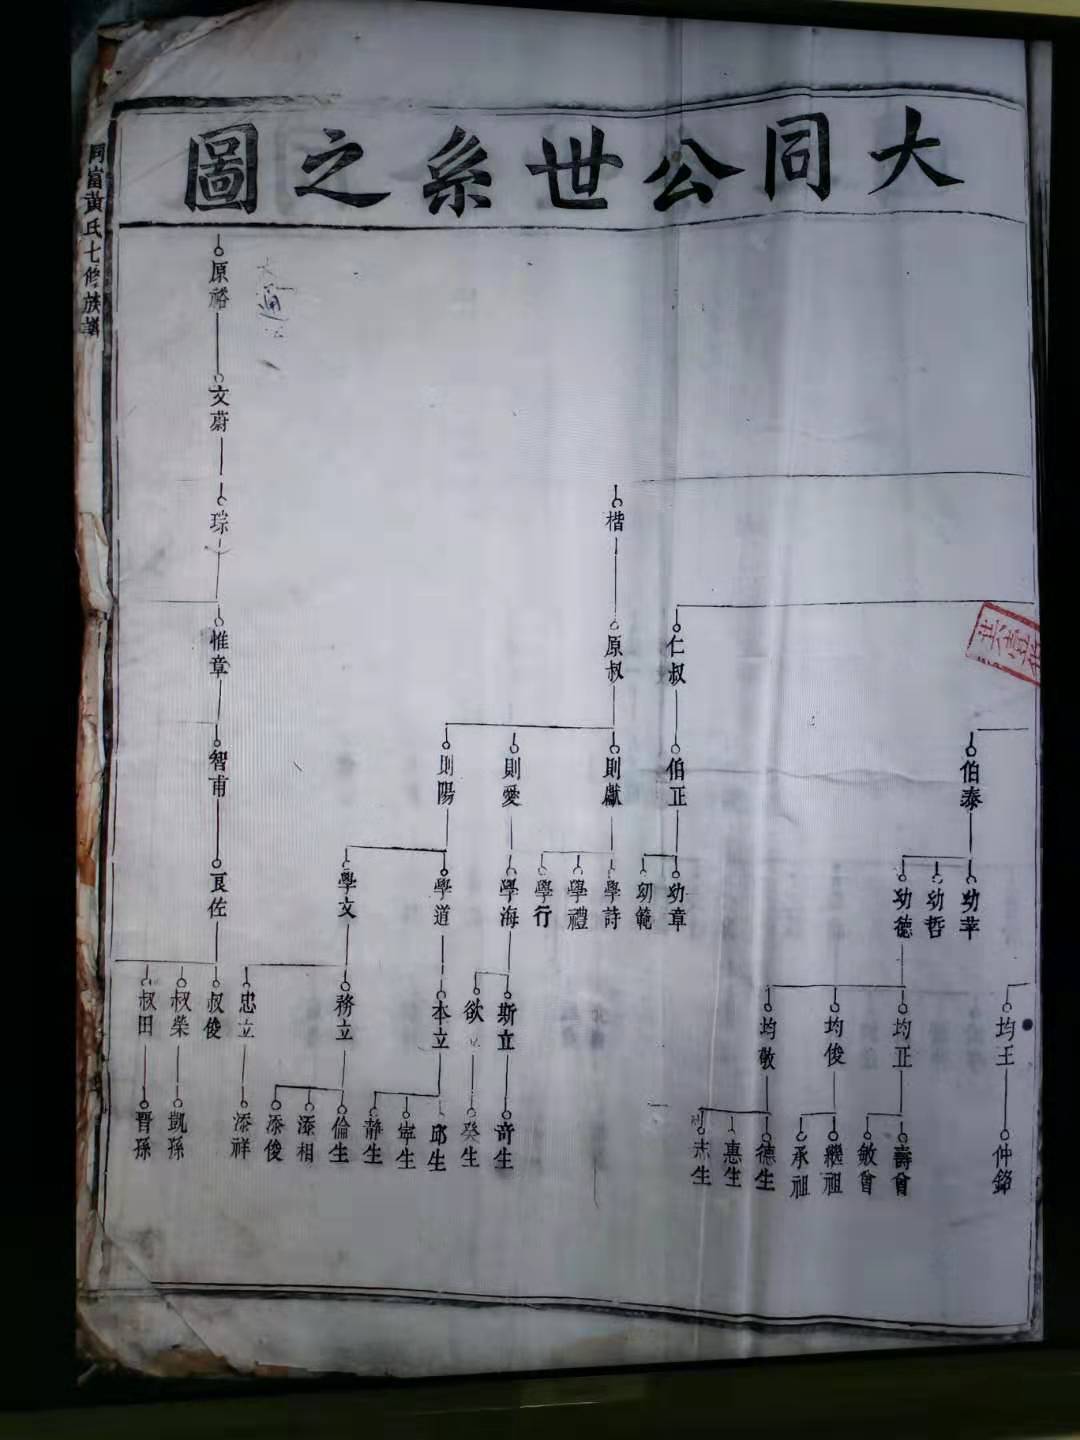 大同公世系之圖
黃氏七修族譜
伯泰
幼莘
幼哲
幼德
均王
均正
均俊
均敬
仲銘
壽曾
敏曾
繼祖
承祖
德生
惠生
志生
仁叔
伯正
幼章
幼範
楷
原叔
則獻
則愛
則陽
學詩
學禮
學行
學海
學道
學文
斯立
欲立
本立
務立
忠立
奇生
癸生
邱生
寧生
靜生
倫生
添相
添俊
添祥
原裕
文蔚
琮
惟章
智甫
良佐
叔俊
叔榮
叔田
凱孫
晋孫